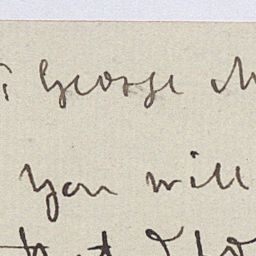 George M
You will
that I do